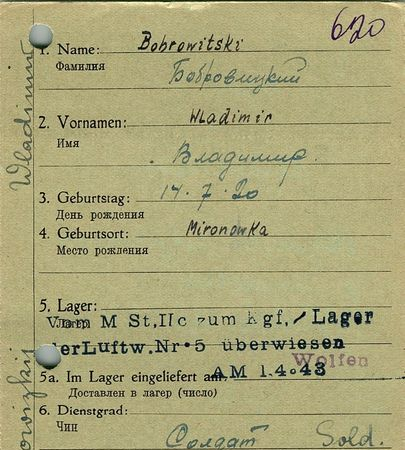 620
1. Name: Bobrowitski
Фамилия Бобровицкий
2. Vornamen: Wladimir
Имя Владимир.
3. Geburtstag: 14.7.20
День рождения
4. Geburtsort: Mironowka
Место рождения
5. Lager:
Vom M St,IIc zum Kgf,/Lager
Лагерь
derLuftw.Nr.5 überwiesen
Wolfen
5a. Im Lager eingeliefert am, AM 1.4.43
Доставлен в лагерь (число)
6. Dienstgrad:
Чин Солдат Sold.
Wladimir